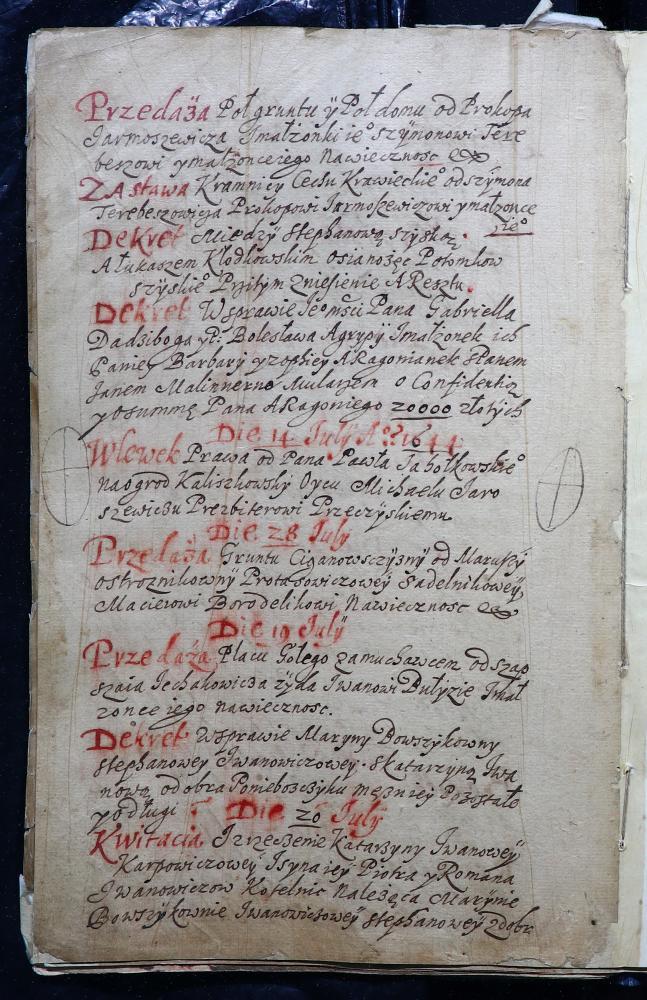 Przedaża Poł gruntu ÿ Poł domu od Prokopa
Jarmoszewicza Jmałżonki ie° Szÿmonowi Tere
beszowi ymałżonce iego Nawieczność
ZAstawa Kramnicy Cechu Krawieckie° od szÿmona
Terebeszowicza Prokopowi Jarmoszewiczowi ymałżonce
ie°
Dekret Miedzÿ Stephanową szÿską
A Łukaszem Kłodkowskim osianożęc Potomkow
szÿskie° Przÿtÿm zniesienie AResztu.
Dekret Wsprawie Je°mści Pana Gabriella
Dadziboga Bolesława Agrypÿ Jmałżonek ich
Paniey Barbarÿ yzophiey ARagonianek sPanem
Janem Malinnerne Mularzem o Confidentią
y osummę Pana ARagoniego 20000 złotÿch
Die 14 Julÿ A° 1644
Wlewek Prawa od Pana Pawła Jabołkowskie°
naogrod Kaliszkowskÿ Oycu Michaełu Jaro
szewiczu Prezbiterowi Przeczÿskiemu
Die 28 Julÿ
Przedaża Gruntu Ciganowsczÿznÿ od Maruszÿ
ostroznikownÿ Protasowiczoweÿ Sadelnikoweÿ
Macieiowi Borodelikowi Nawieczność
Die 19 Julÿ
Przedaża Placu Gołego zamuchawcem od szap
szaia Jechakowicza żÿda Jwanowi Bułÿzie Jmał
żonce iego nawieczność.
Dekret Wsprawie Marynÿ Bowszÿkownÿ
Stephanoweÿ Jwanowiczoweÿ. sKatarzÿną Jwa
nową odobra Poniebosczÿku męzu iey Pozostałe
ÿodługi Die 20 Julÿ
Kwitacia Jzrzeczenie Katarzÿnÿ Jwanoweÿ
Karpowiczoweÿ Jsÿna iey Piotra y Romana
Jwanowiczow Kotelnie Należąca Marÿnie
Bowszÿkownie Jwanowiczoweÿ Stephanoweÿ zdobr